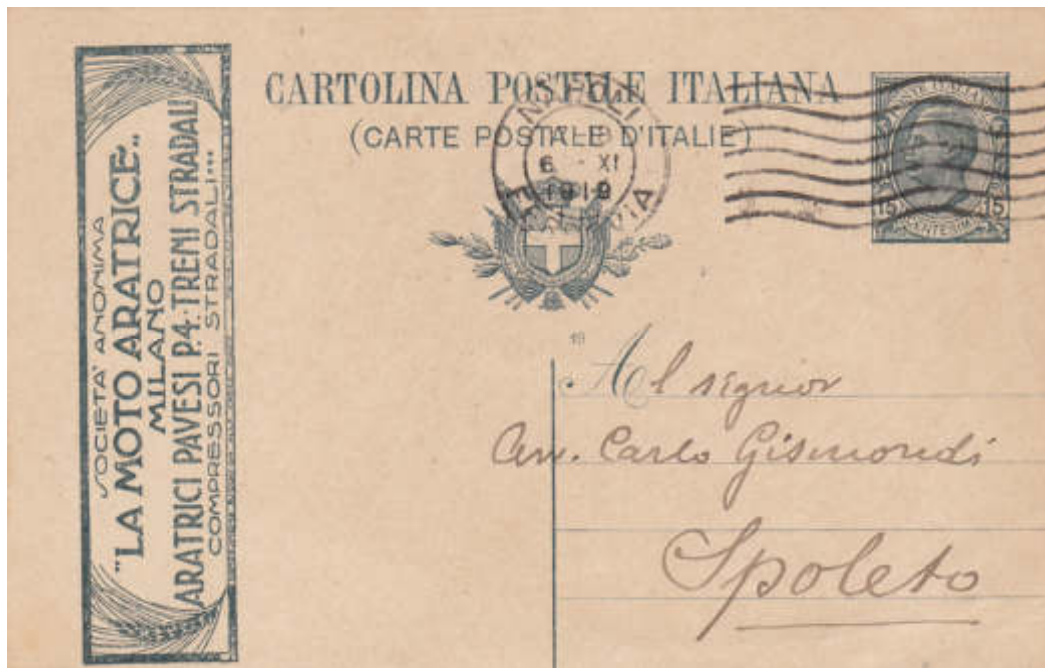 SOCIETA' ANONIMA
"LA MOTO ARATRICE"
MILANO
ARATRICI PAVESI P.4. TRENI STRADALI
COMPRESSORI STRADALI...
CARTOLINA POSTALE ITALIANA
(CARTE POSTALE D'ITALIE)
NAPOLI
6 - XI
1919
15 15
CENTESIMI
19
Al signor
Avv. Carlo Gismondi
Spoleto